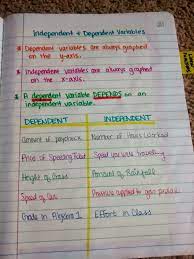 Independent & Dependent Variables
Dependent variables are always graphed
on the y-axis.
Independent variables are always graphed
on the x-axis.
A dependent variable DEPENDS on an
independent variable.
DEPENDENT INDEPENDENT
Amount of paycheck Number of Hours Worked
Price of Speeding Ticket Speed you were traveling
Height of Grass Amount of Rainfall
Speed of Car Pressure applied to gas pedal
Grade in Algebra 1 Effort in Class